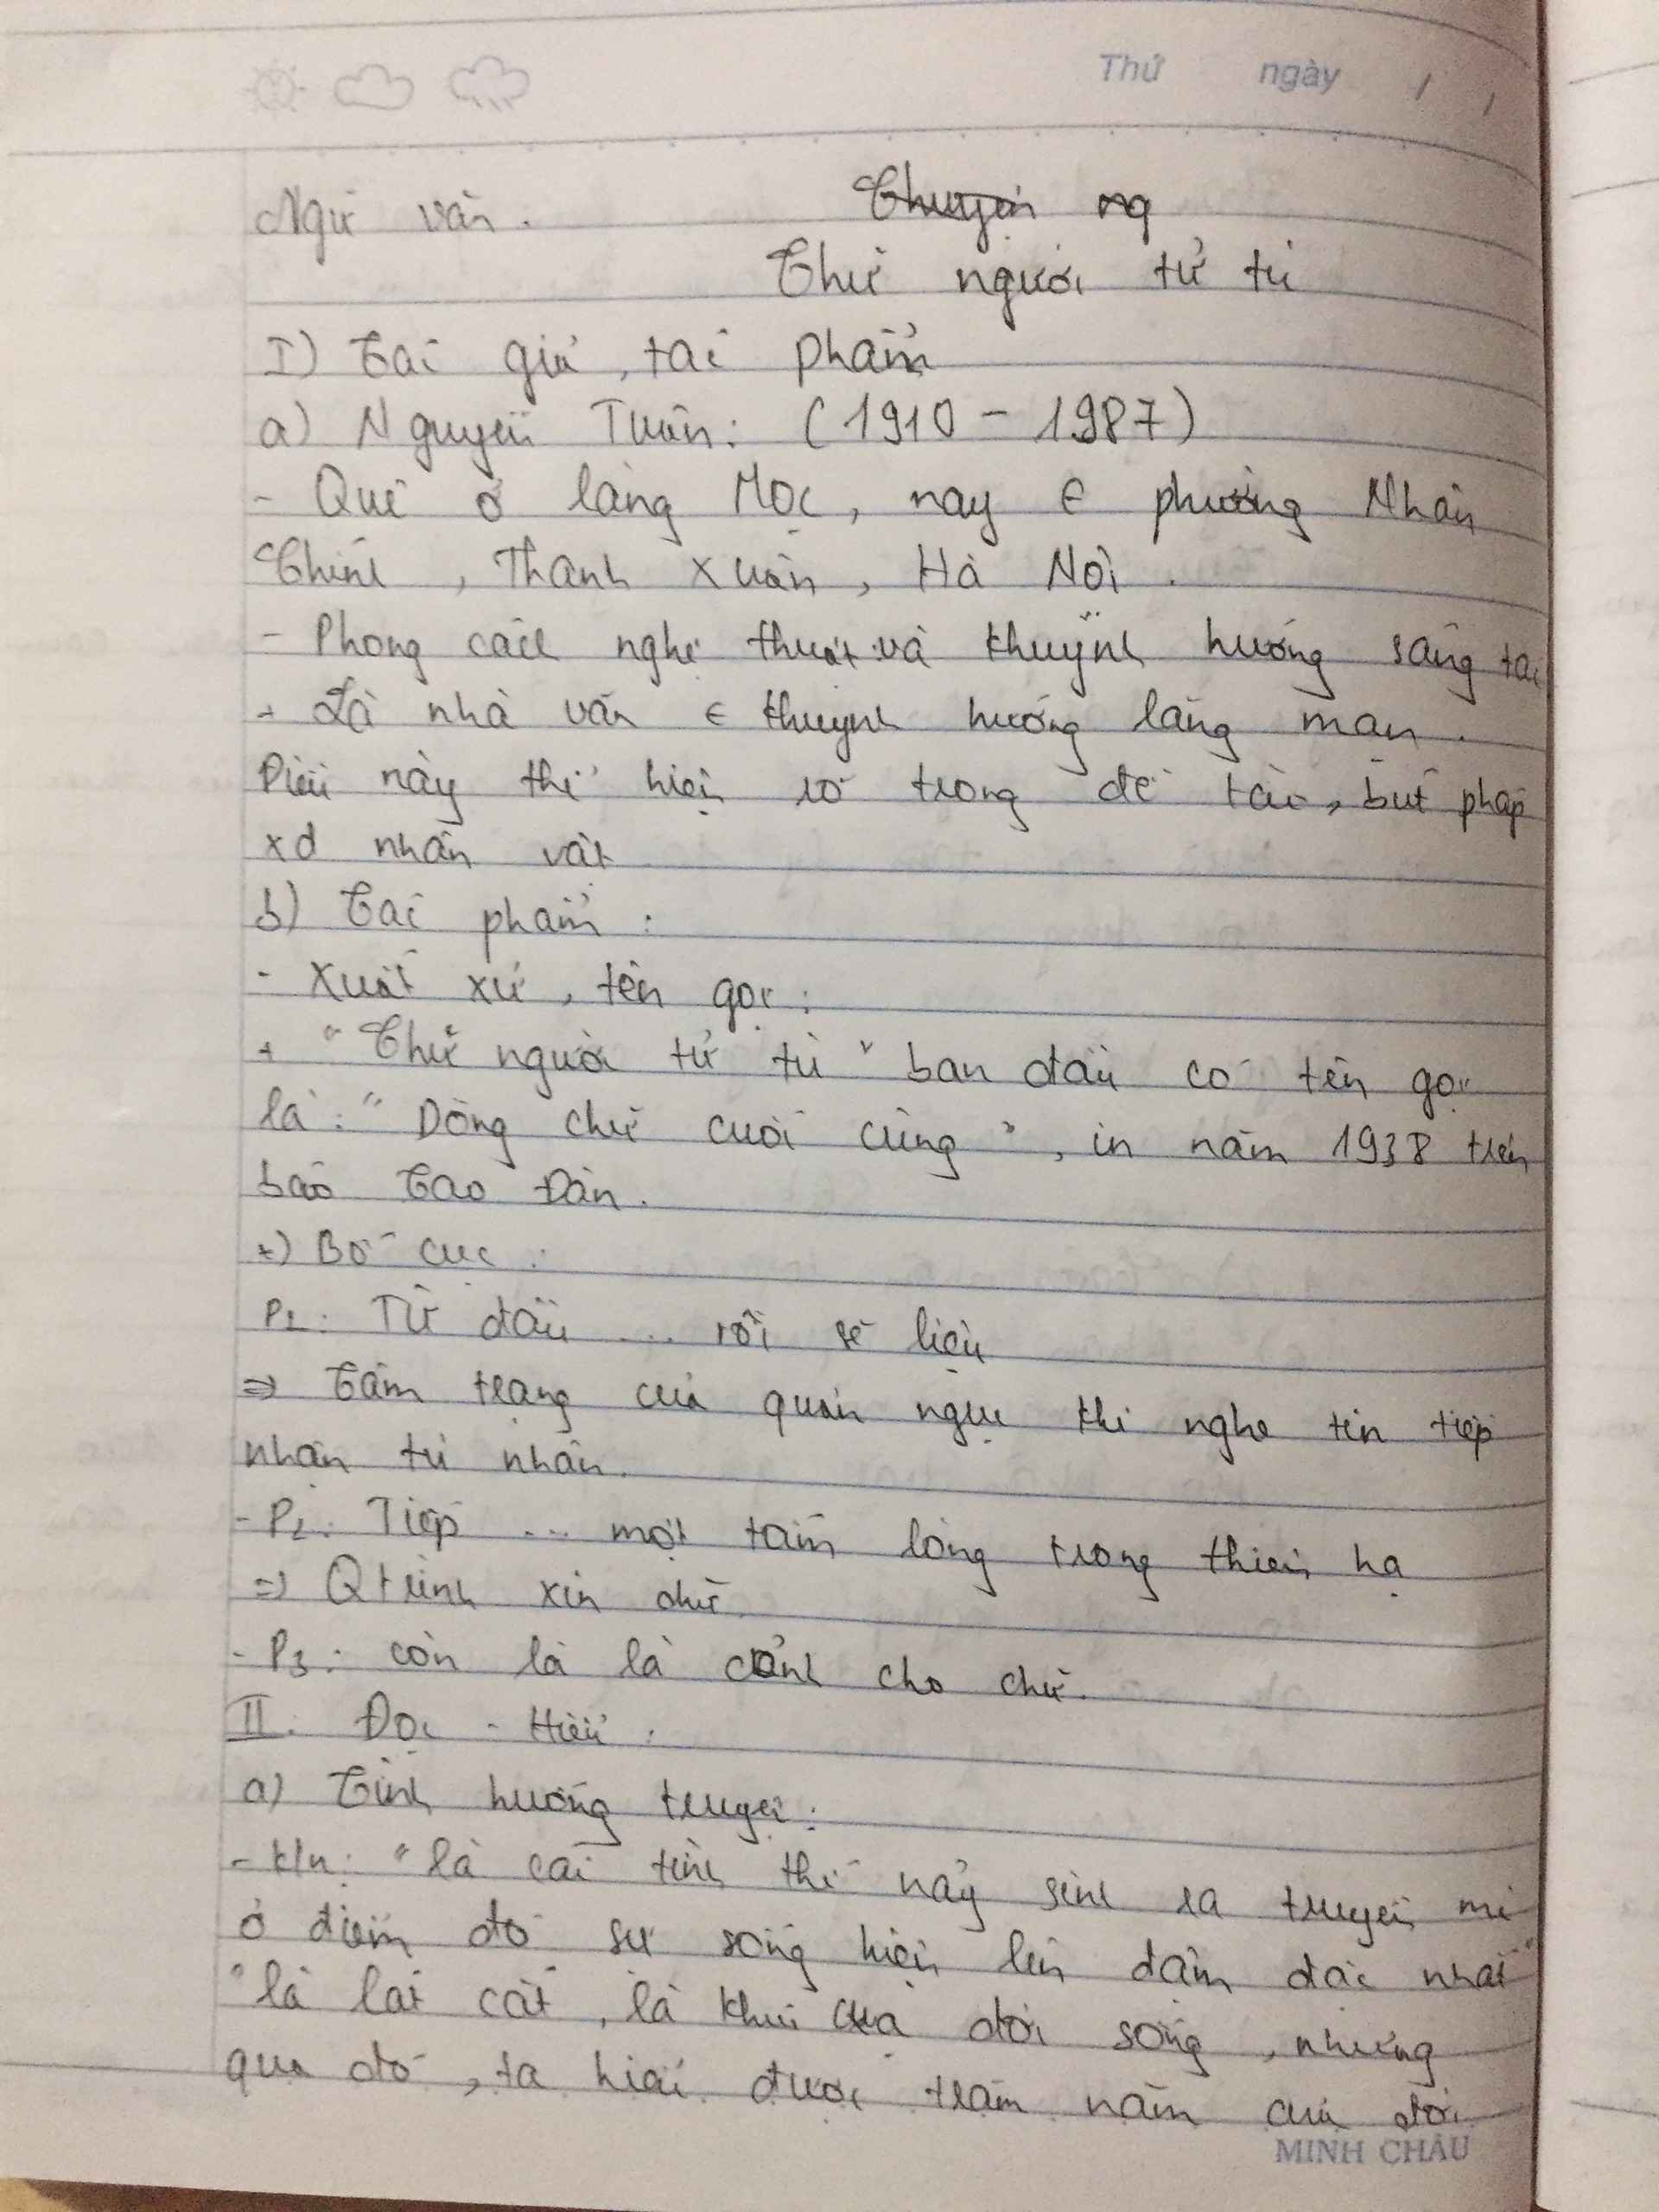 Thứ ngày / /
Ngữ văn.
Chuyện ng
Chữ người tử tù
I) Tác giả, tác phẩm
a) Nguyễn Tuân: (1910 - 1987)
- Quê ở làng Mọc, nay ∈ phường Nhân
Chính, Thanh Xuân, Hà Nội.
- Phong cách nghệ thuật và khuynh hướng sáng tác
+ Là nhà văn ∈ khuynh hướng lãng mạn.
Điều này thể hiện rõ trong đề tài, bút pháp
xd nhân vật
b) Tác phẩm:
- Xuất xứ, tên gọi:
+ "Chữ người tử tù" ban đầu có tên gọi
là: "Dòng chữ cuối cùng", in năm 1938 trên
báo Tao Đàn.
+) Bố cục:
P1: Từ đầu ... rồi sẽ liệu
=> Tâm trạng của quản ngục khi nghe tin tiếp
nhận tù nhân.
- P2: Tiếp ... một tấm lòng trong thiên hạ
=> Qtrình xin chữ.
- P3: còn lại là cảnh cho chữ.
II. Đọc - Hiểu:
a) Tình huống truyện:
- k/n: "là cái tình thế nảy sinh ra truyện mà
ở điểm đó sự sống hiện lên đậm đặc nhất"
"là lát cắt, là khúc của đời sống, nhưng
qua đó, ta hiểu được trăm năm của đời
MINH CHÂU